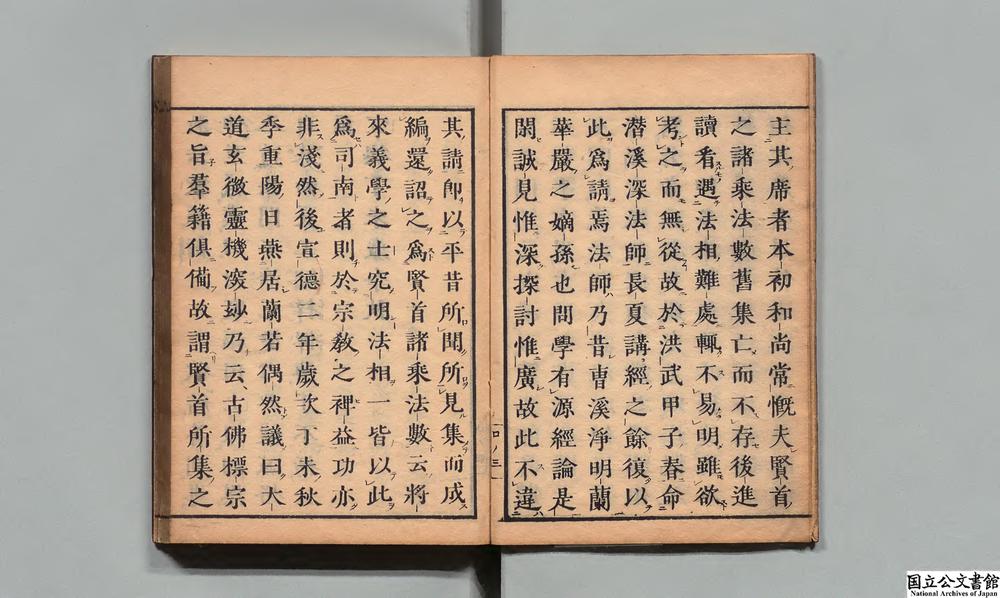 主其席者本初和尚常慨夫賢首
之諸乘法數舊集亡而不存後進
讀看遇法相難處輒不易明雖欲
考之而無從故於洪武甲子春命
潛溪深法師長夏講經之餘復以
此爲請焉法師乃昔曹溪淨明蘭
華嚴之嫡孫也問學有源經論是
閑誠見惟深探討惟廣故此不違
其請卽以平昔所聞所見集而成
編還詔之爲賢首諸乘法數云將
來義學之士究明法相一皆以此
爲司南者則於宗教之裨益功亦
非淺然後宣德二年歲次丁未秋
季重陽日燕居蘭若偶然議曰大
道玄微靈機湥玅乃云古佛標宗
之旨羣籍俱備故謂賢首所集之
国立公文書館
National Archives of Japan